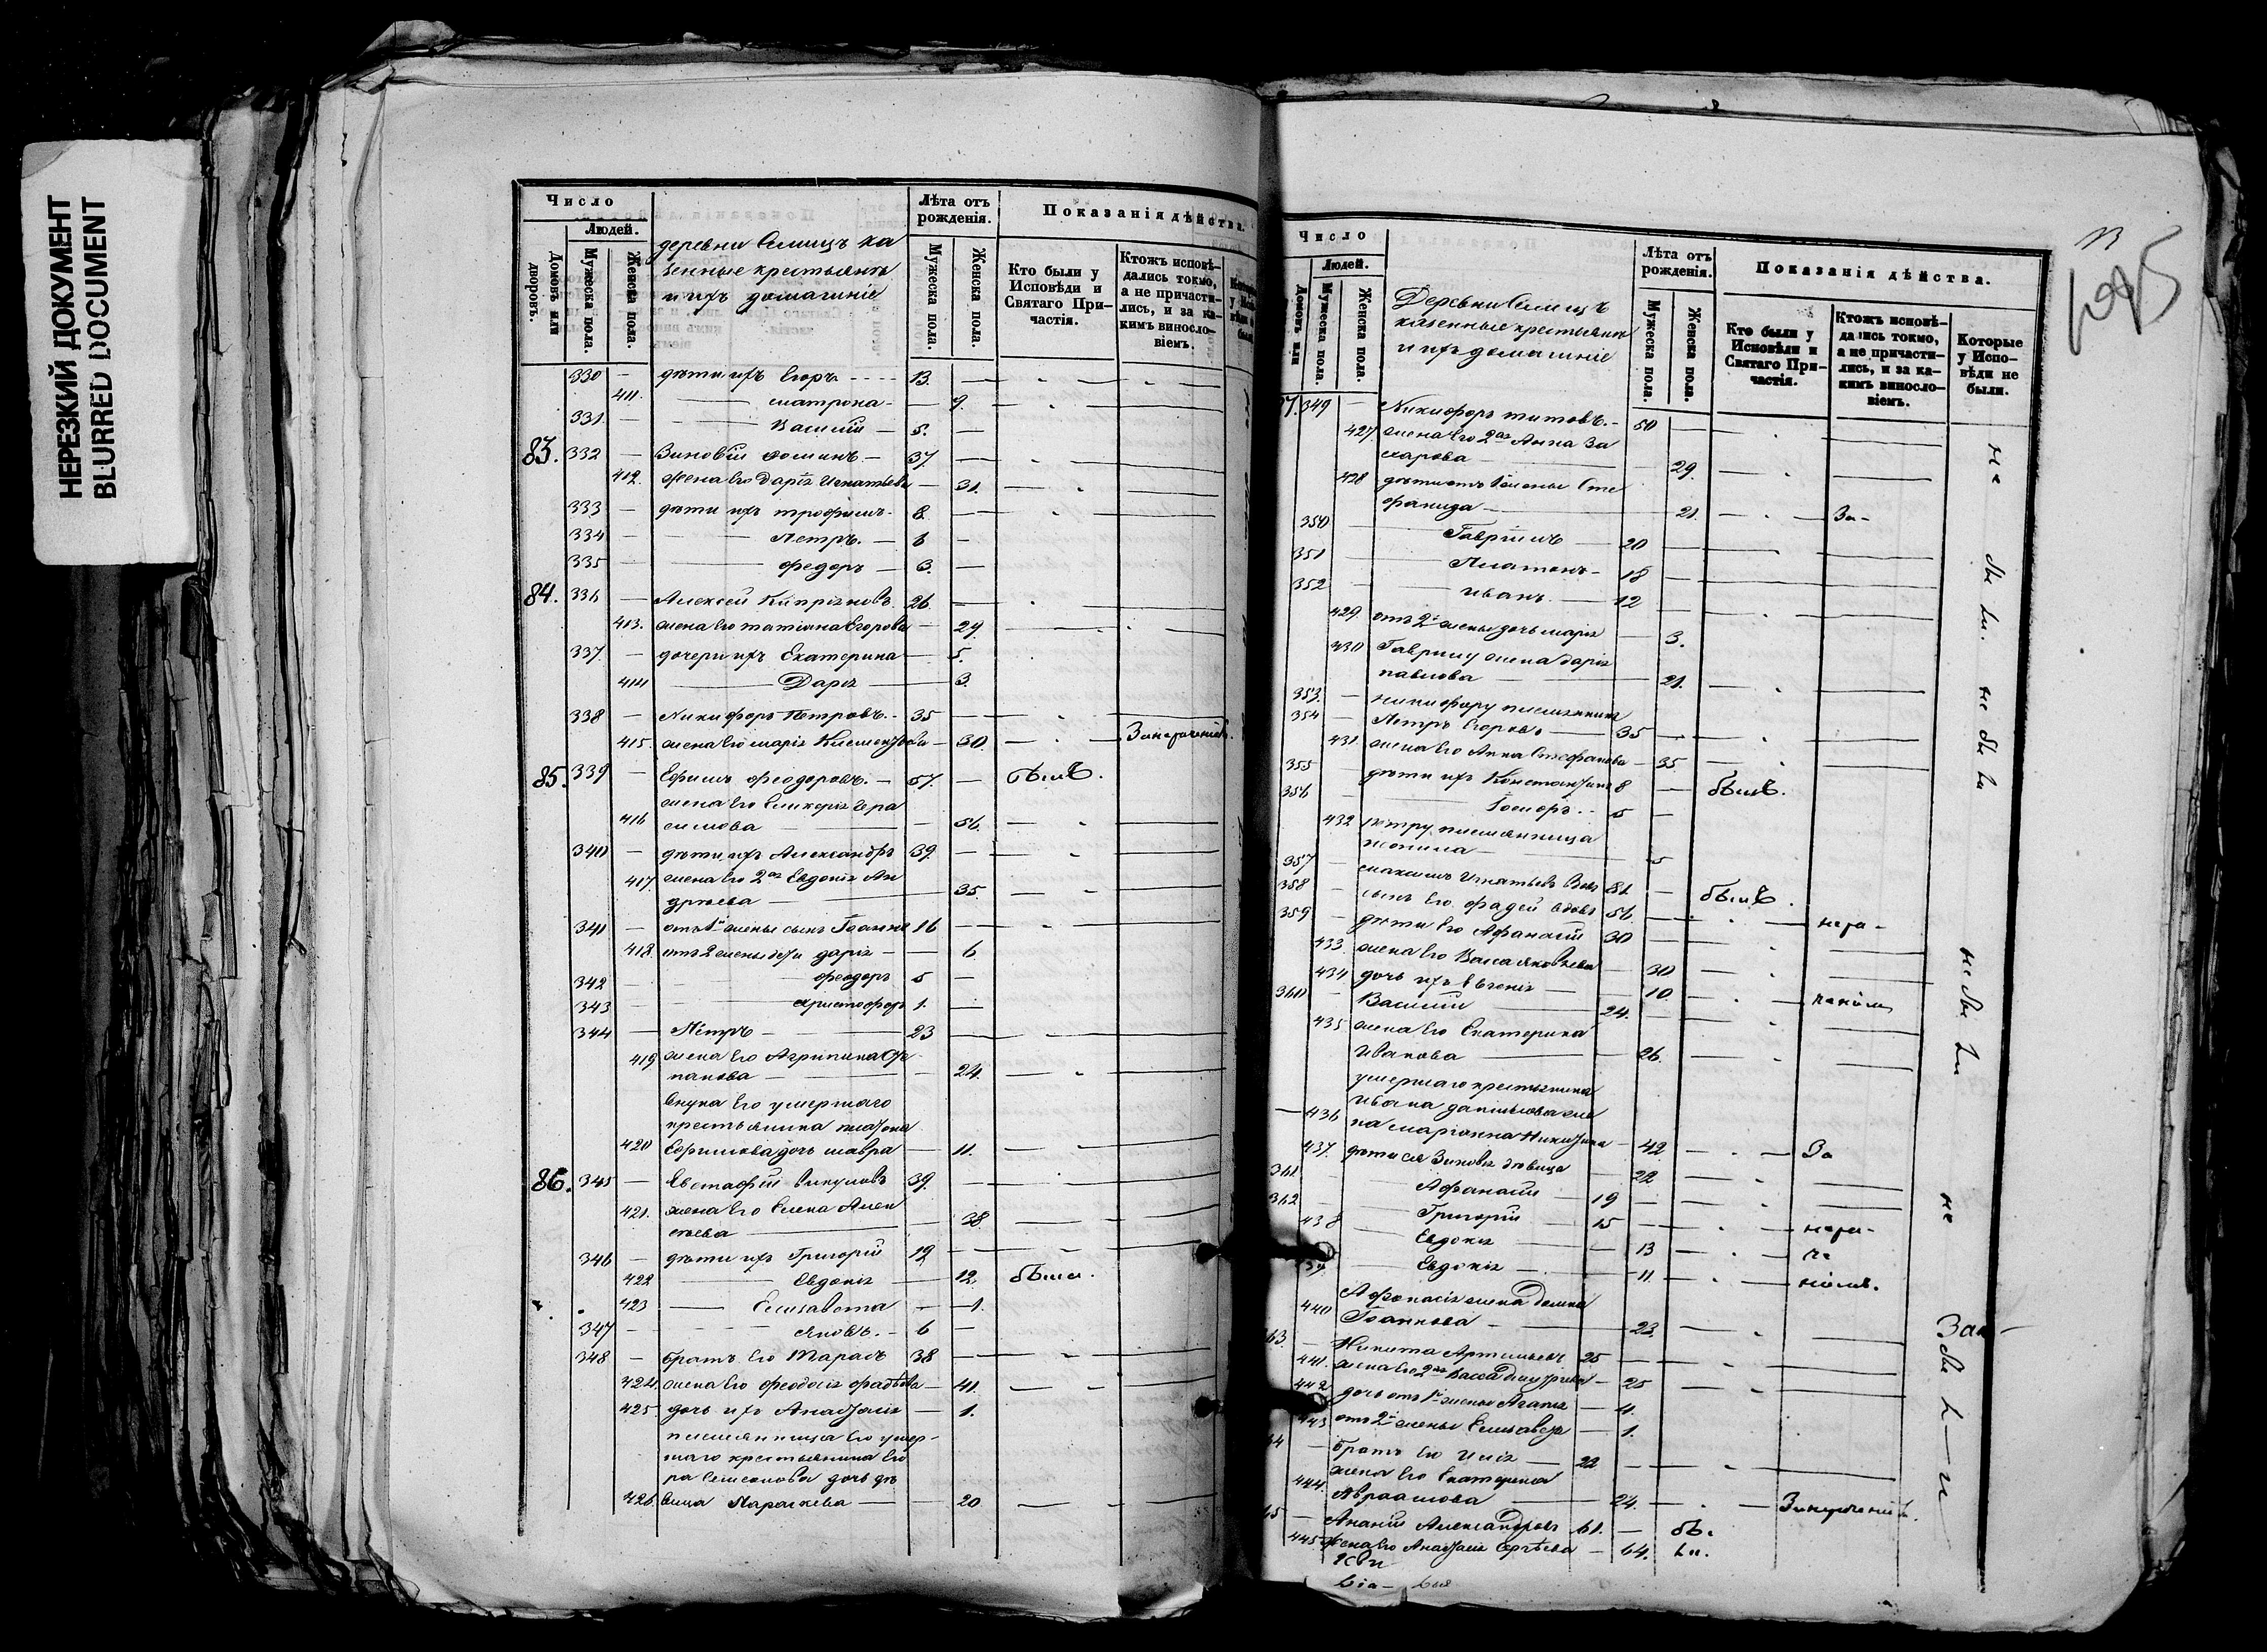 НЕРЕЗКИЙ ДОКУМЕНТ
BLURRED DOCUMENT
Число
Людей.
Домовъ или дворовъ.
Мужеска пола.
Женска пола.
деревни Селищъ ка
зенные крестьяне
и ихъ домашніе
Лѣта отъ рожденія.
Мужеска пола.
Женска пола.
Показанія дѣйства.
Кто были у Исповѣди и Святаго Причастія.
Ктожъ исповѣдались токмо, а не причастились, и за какимъ винословіемъ.
330 — дѣти ихъ Егоръ 13.
411 матрона 9.
331. — Василій 5.
83. 332 — Зиновій Фоминъ 37.
412. жена его Дарія Игнатьева 31.
333 — дѣти ихъ трофимъ 8.
334 — Петръ. 6
335 — федоръ 3.
84. 336 — Алексей Кипріановъ 26
413. жена его татіана Егорова 29
337 — дочери ихъ Екатерина 5.
414 Дарія 3.
338 — Никифоръ Петровъ. 35
415. жена его марія Климентьева 30.
85. 339 — Ефимъ феодоровъ. 57. — былъ.
жена его Гликерія Гера
416 симова 56.
340 — дѣти ихъ Александръ 39.
417 жена его 2ая Евдокія Ан
дреева 35.
341 — отъ 1й жены сынъ Іоаннъ 16
418. отъ 2 жены дѣти дарія 6
342 феодоръ 5
343 христофоръ 1.
344 — Петръ 23
419 жена его Агрипина Сте
панова 24.
внука его умершаго
крестьянина платона
420 Ефимова дочь мавра 11.
86. 345 — Евстафій викуловъ 39.
421. жена его Елена Алек
сѣева 38.
346 — дѣти ихъ Григорій 12
422 Евдокія 12. была.
423 Елисавета 1.
347 — Яковъ. 6
348 — братъ его Тарасъ 38
424. жена его феодосія фадѣева 41.
425. дочь ихъ Анастасія 1.
племянница его умер-
шаго крестьянина Его
ра Симеонова дочь дѣ
426. вица Параскева 20
Число
Людей.
Домовъ или
Мужеска пола.
Женска пола.
Деревни Селищъ
казенные крестьяне
и ихъ домашніе
Лѣта отъ рожденія.
Мужеска пола.
Женска пола.
Показанія дѣйства.
Кто были у Исповѣди и Святаго Причастія.
Ктожъ исповѣдались токмо, а не причастились, и за какимъ винословіемъ.
Которые у Исповѣди не были.
349 — Никифоръ титовъ. 50
427. жена его 2ая Анна За
харова 29.
428 дѣти отъ 1 жены Сте
фанида 21. За-
350 Гавріилъ 20
351 Платонъ 18
352 Иванъ 12
429. отъ 2й жены дочь марія 3.
430 Гавріилу жена дарія
павлова 21.
353. — никифору племянникъ
354 — Петръ Егоровъ 35
431. жена его Анна Стефанова 35
355 дѣти ихъ Константинъ 8 — былъ.
356 5
432 петру племянница
5
357 — максимъ Игнатьевъ 81. — былъ.
358 — сынъ его фадей вдовъ 56.
359 — дѣти его Афанасій 30
433. жена его Васса Яковлева 30
434 дочь ихъ Евгенія 10.
360 — Василій 24.
435 жена его Екатерина
Иванова 26.
умершаго крестьянина
Ивана данілова же
436 на маріанна Никитина 42. За
437. дѣти ея Зиновія дѣвица 22
361 Афанасій 19
362 Григорій 15
438 Евдокія 13
39 Евдокія 11.
Афанасія жена домна
440 Іоаннова 23.
63. — Никита Артемьевъ 25
441. жена его 2ая Васса Дмитріева 25
442 дочь отъ 1й жены Агапія 4.
443 отъ 2й жены Елисавета 1.
64 — братъ его Илія 22
жена его Екатерина
444. Авраамова 24.
65 — Ананій Александровъ 61. — бы.
445 жена его Анастасія Сергѣева 64. ли.